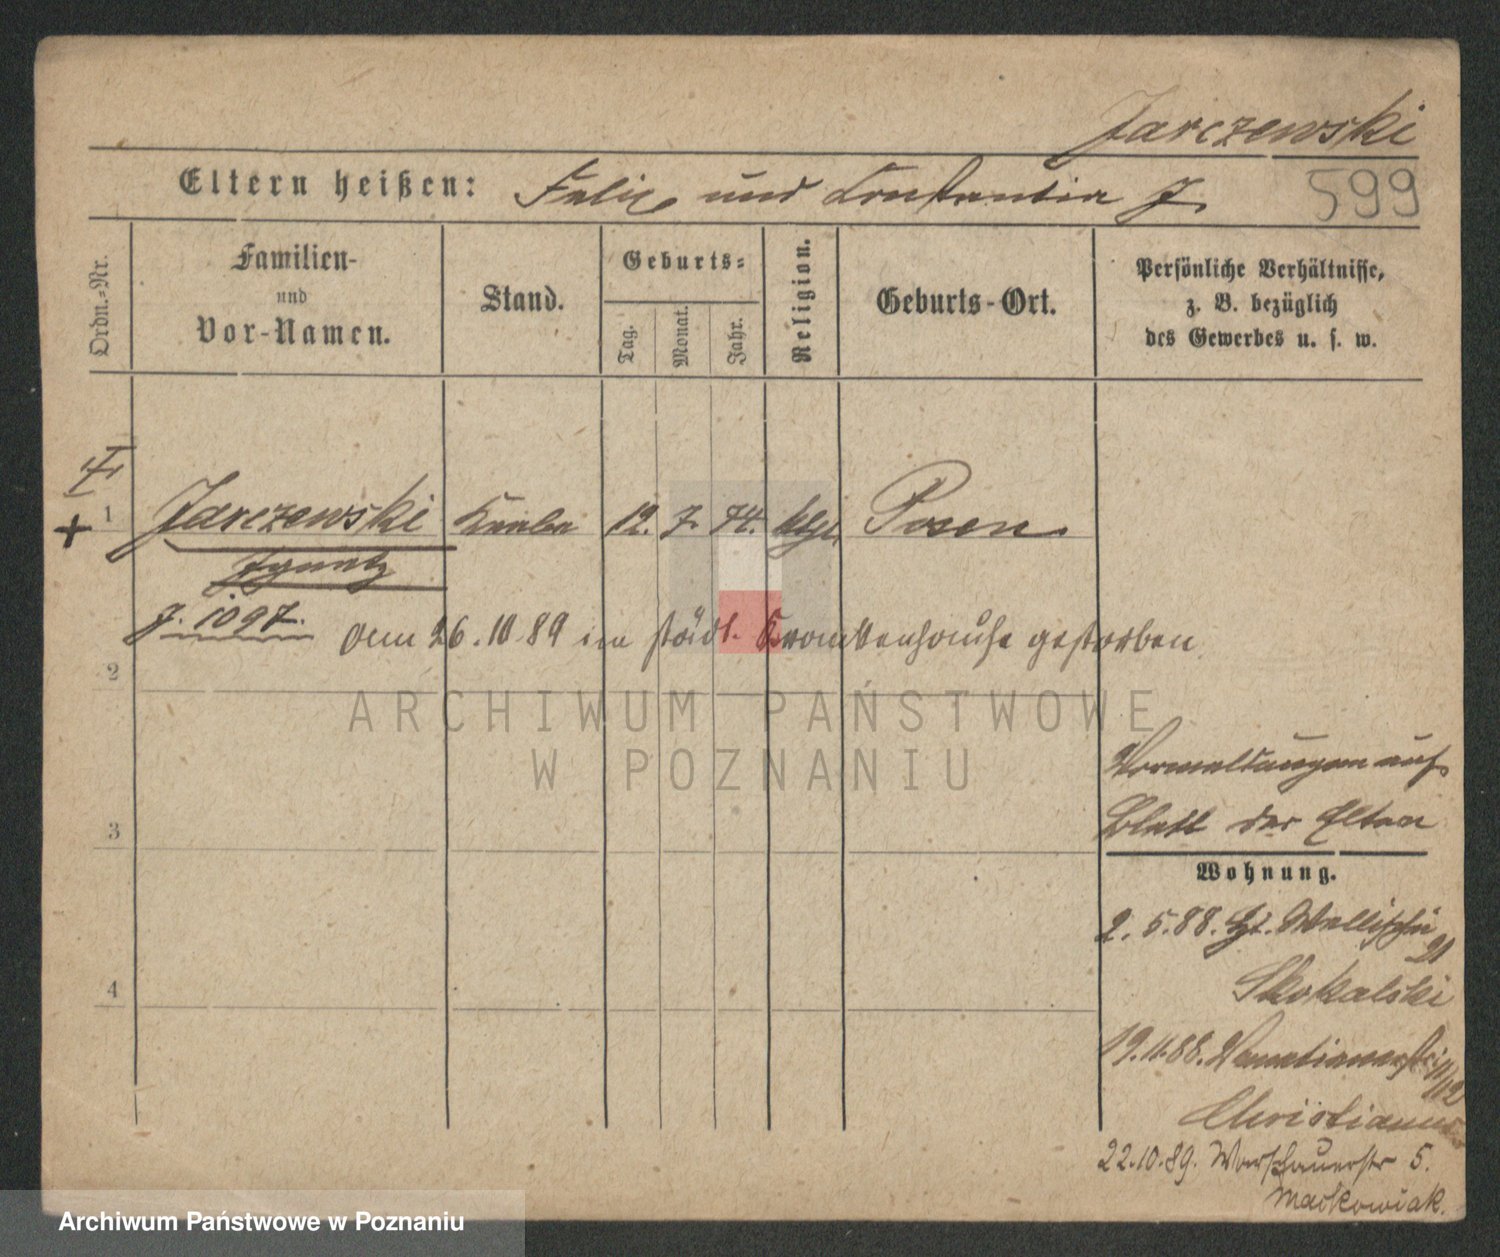 Jarczewski
Eltern heißen: Felix und Constantia J.
599
Ordn.-Nr.
Familien-
und
Vor-Namen.
Stand.
Geburts-
Tag.
Monat.
Jahr.
Religion.
Geburts-Ort.
Persönliche Verhältnisse,
z. B. bezüglich
des Gewerbes u. s. w.
+ 1 Jarczewski Knabe 12. 7. 74. kthl. Posen
Ignatz
J. 1097.
am 26.10 89 im städt. Krankenhause gestorben
2
ARCHIWUM PAŃSTWOWE
W POZNANIU
3
4
auf
Blatt der Eltern
Wohnung.
2. 5.88. Gr.
21
Skokalski
19.11.88. Venetianerstr
11/12
Christian
22.10.89. Warschauerstr 5.
Maćkowiak.
Archiwum Państwowe w Poznaniu